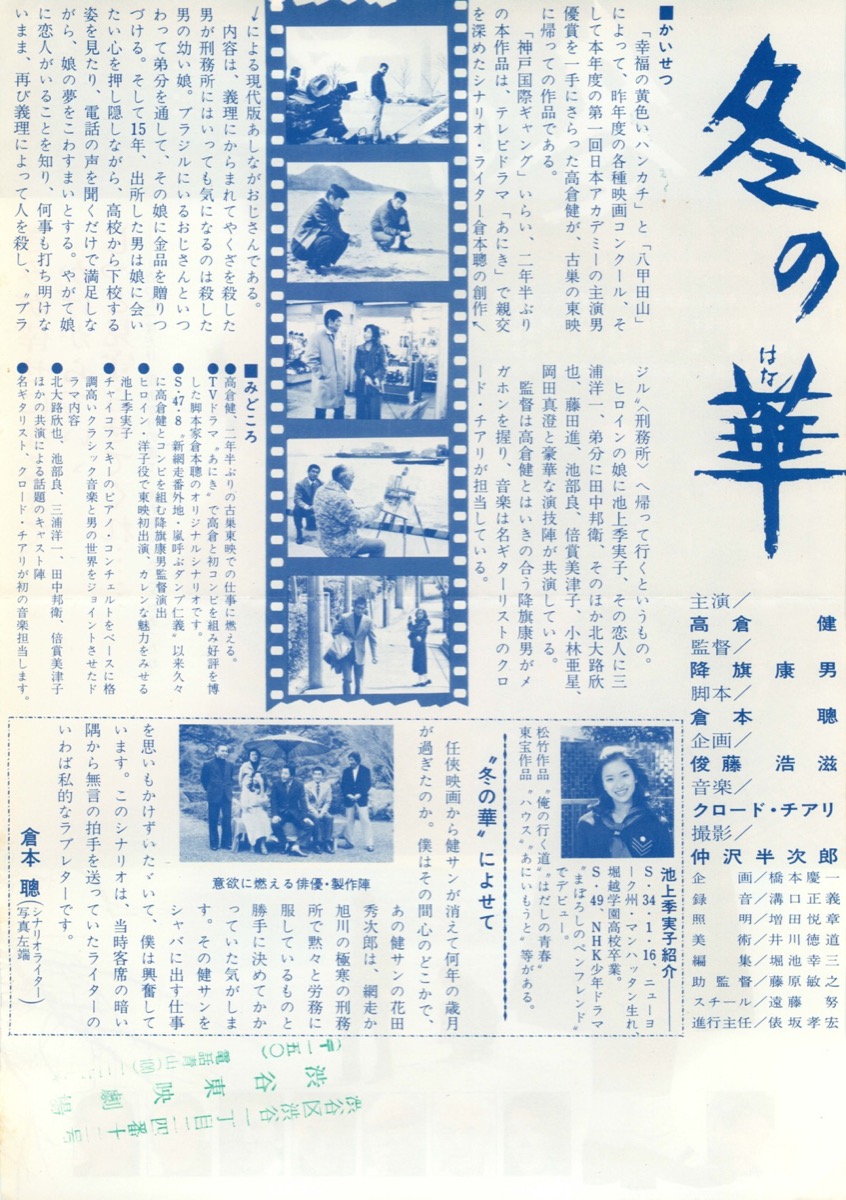 冬の華
はな
主演／
高倉健
監督／
降旗康男
脚本／
倉本聰
企画／
俊藤浩滋
音楽／
クロード・チアリ
撮影／
仲沢半次郎
企画／橋本慶一
録音／溝口正義
照明／増田悦章
美術／井川徳道
編集／堀池幸三
助監督／藤原敏之
スチール／遠藤努
進行主任／俵坂孝宏
■かいせつ
「幸福の黄色いハンカチ」と「八甲田山」
によって、昨年度の各種映画コンクール、そ
して本年度の第一回日本アカデミーの主演男
優賞を一手にさらった高倉健が、古巣の東映
に帰っての作品である。
「神戸国際ギャング」いらい、二年半ぶり
の本作品は、テレビドラマ「あにき」で親交
を深めたシナリオ・ライター倉本聰の創作↖
↙による現代版あしながおじさんである。
内容は、義理にからまれてやくざを殺した
男が刑務所にはいっても気になるのは殺した
男の幼い娘。ブラジルにいるおじさんといつ
わって弟分を通して、その娘に金品を贈りつ
づける。そして15年、出所した男は娘に会い
たい心を押し隠しながら、高校から下校する
姿を見たり、電話の声を聞くだけで満足しな
がら、娘の夢をこわすまいとする。やがて娘
に恋人がいることを知り、何事も打ち明けな
いまま、再び義理によって人を殺し、〝ブラ
ジル〟〈刑務所〉へ帰って行くというもの。
ヒロインの娘に池上季実子、その恋人に三
浦洋一、弟分に田中邦衛、そのほか北大路欣
也、藤田進、池部良、倍賞美津子、小林亜星、
岡田真澄と豪華な演技陣が共演している。
監督は高倉健とはいきの合う降旗康男がメ
ガホンを握り、音楽は名ギターリストのクロ
ード・チアリが担当している。
■みどころ
●高倉健、二年半ぶりの古巣東映での仕事に燃える。
●TVドラマ〝あにき〟で高倉と初コンビを組み好評を博
した脚本家倉本聰のオリジナルシナリオです。
●S・47・8〝新網走番外地・嵐呼ぶダンプ仁義〟以来久々
に高倉健とコンビを組む降旗康男監督演出
●ヒロイン・洋子役で東映初出演、カレンな魅力をみせる
池上季実子
●チャイコフスキーのピアノ・コンチェルトをベースに格
調高いクラシック音楽と男の世界をジョイントさせたド
ラマ内容
●北大路欣也、池部良、三浦洋一、田中邦衛、倍賞美津子
ほかの共演による話題のキャスト陣
●名ギタリスト、クロード・チアリが初の音楽担当します。
池上季実子紹介
S・34・1・16、ニューヨ
ーク州・マンハッタン生れ、
堀越学園高校卒業。
S・49、NHK少年ドラマ
〝まぼろしのペンフレンド〟
でデビュー。
松竹作品〝俺の行く道〟〝はだしの青春〟
東宝作品〝ハウス〟〝あにいもうと〟等がある。
〝冬の華〟によせて
任俠映画から健サンが消えて何年の歳月
が過ぎたのか。僕はその間心のどこかで、
あの健サンの花田
秀次郎は、網走か
旭川の極寒の刑務
所で黙々と労務に
服しているものと
勝手に決めてかか
っていた気がしま
す。その健サンを
シャバに出す仕事
を思いもかけずいたゞいて、僕は興奮して
います。このシナリオは、当時客席の暗い
隅から無言の拍手を送っていたライターの
いわば私的なラブレターです。
倉本 聰
(シナリオライター
写真左端)
意欲に燃える俳優・製作陣
渋谷区渋谷一丁目二四番十二号
渋谷東映劇場
(〒一五〇)